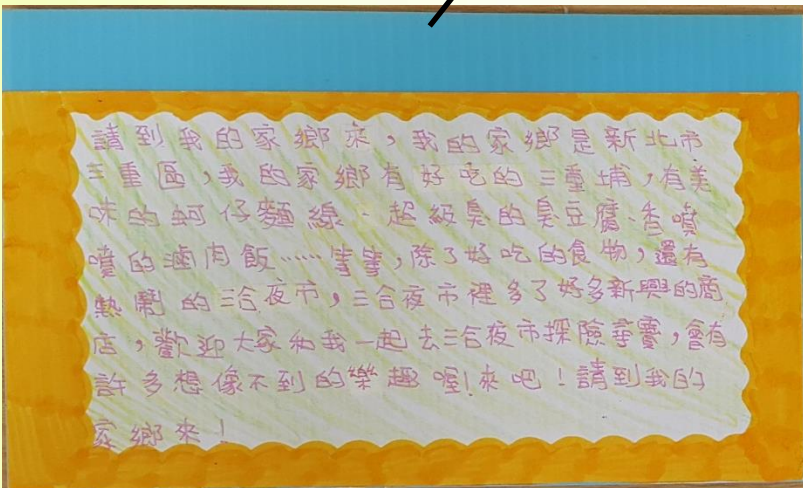 請到我的家鄉來，我的家鄉是新北市
三重區，我的家鄉有好吃的三重埔，有美
味的蚵仔麵線、超級臭的臭豆腐、香噴
噴的滷肉飯……等等，除了好吃的食物，還有
熱鬧的三合夜市，三合夜市裡多了好多新興的商
店，歡迎大家和我一起去三合夜市探險尋寶，會有
許多想像不到的樂趣喔！來吧！請到我的
家鄉來！